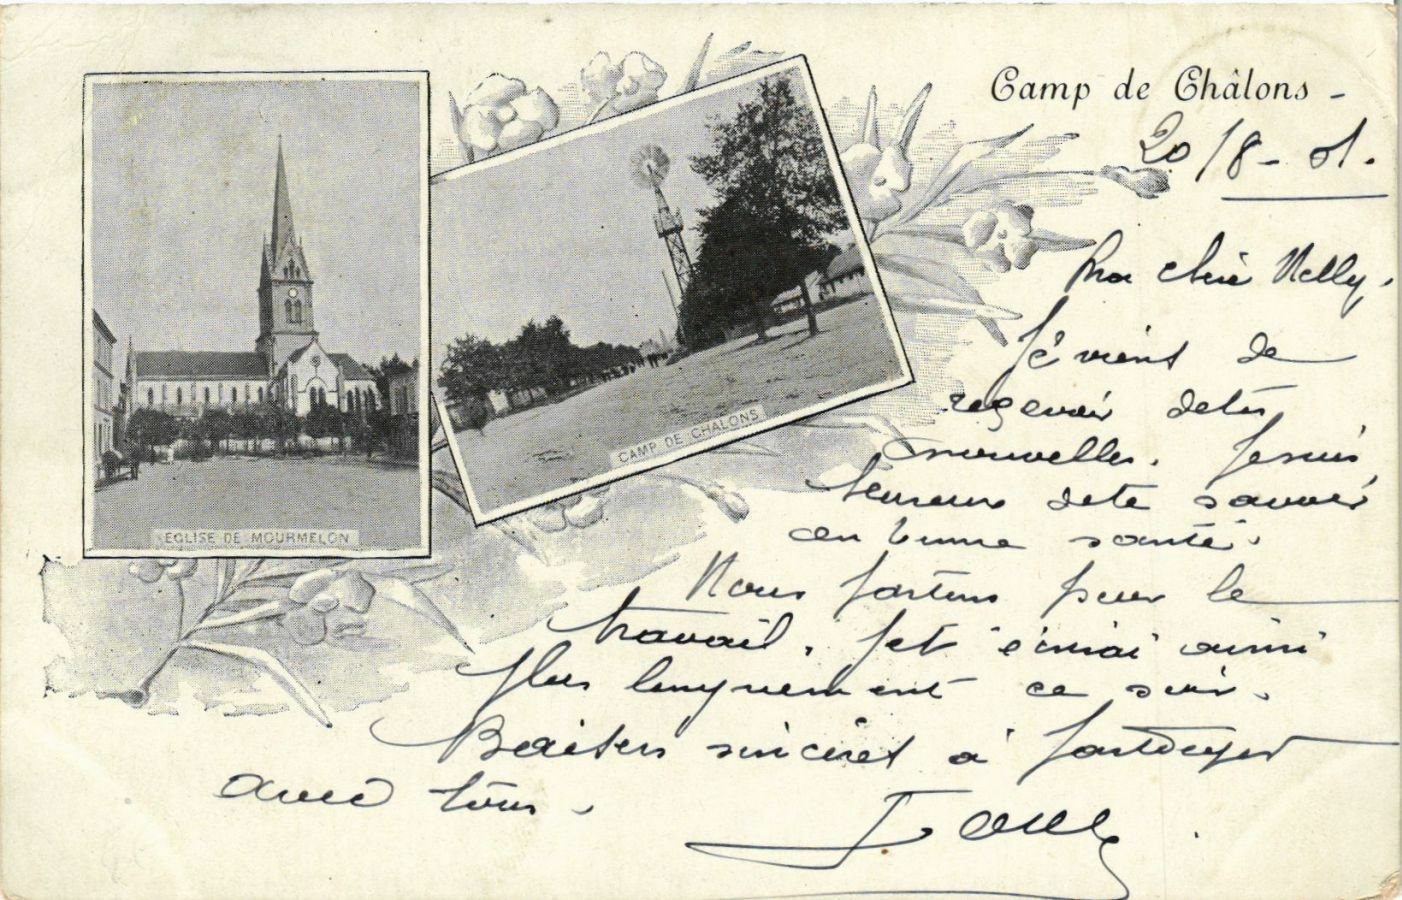 Camp de Châlons -
20/8 - 01.
Ma chère Nelly,
Je viens de
recevoir de tes
nouvelles. Je suis
heureux de te savoir
en bonne santé.
Nous partons pour le
travail. Je t'écrirai aussi
plus longuement ce soir.
Baisers sincères à partager
avec tous.
EGLISE DE MOURMELON
CAMP DE CHALONS